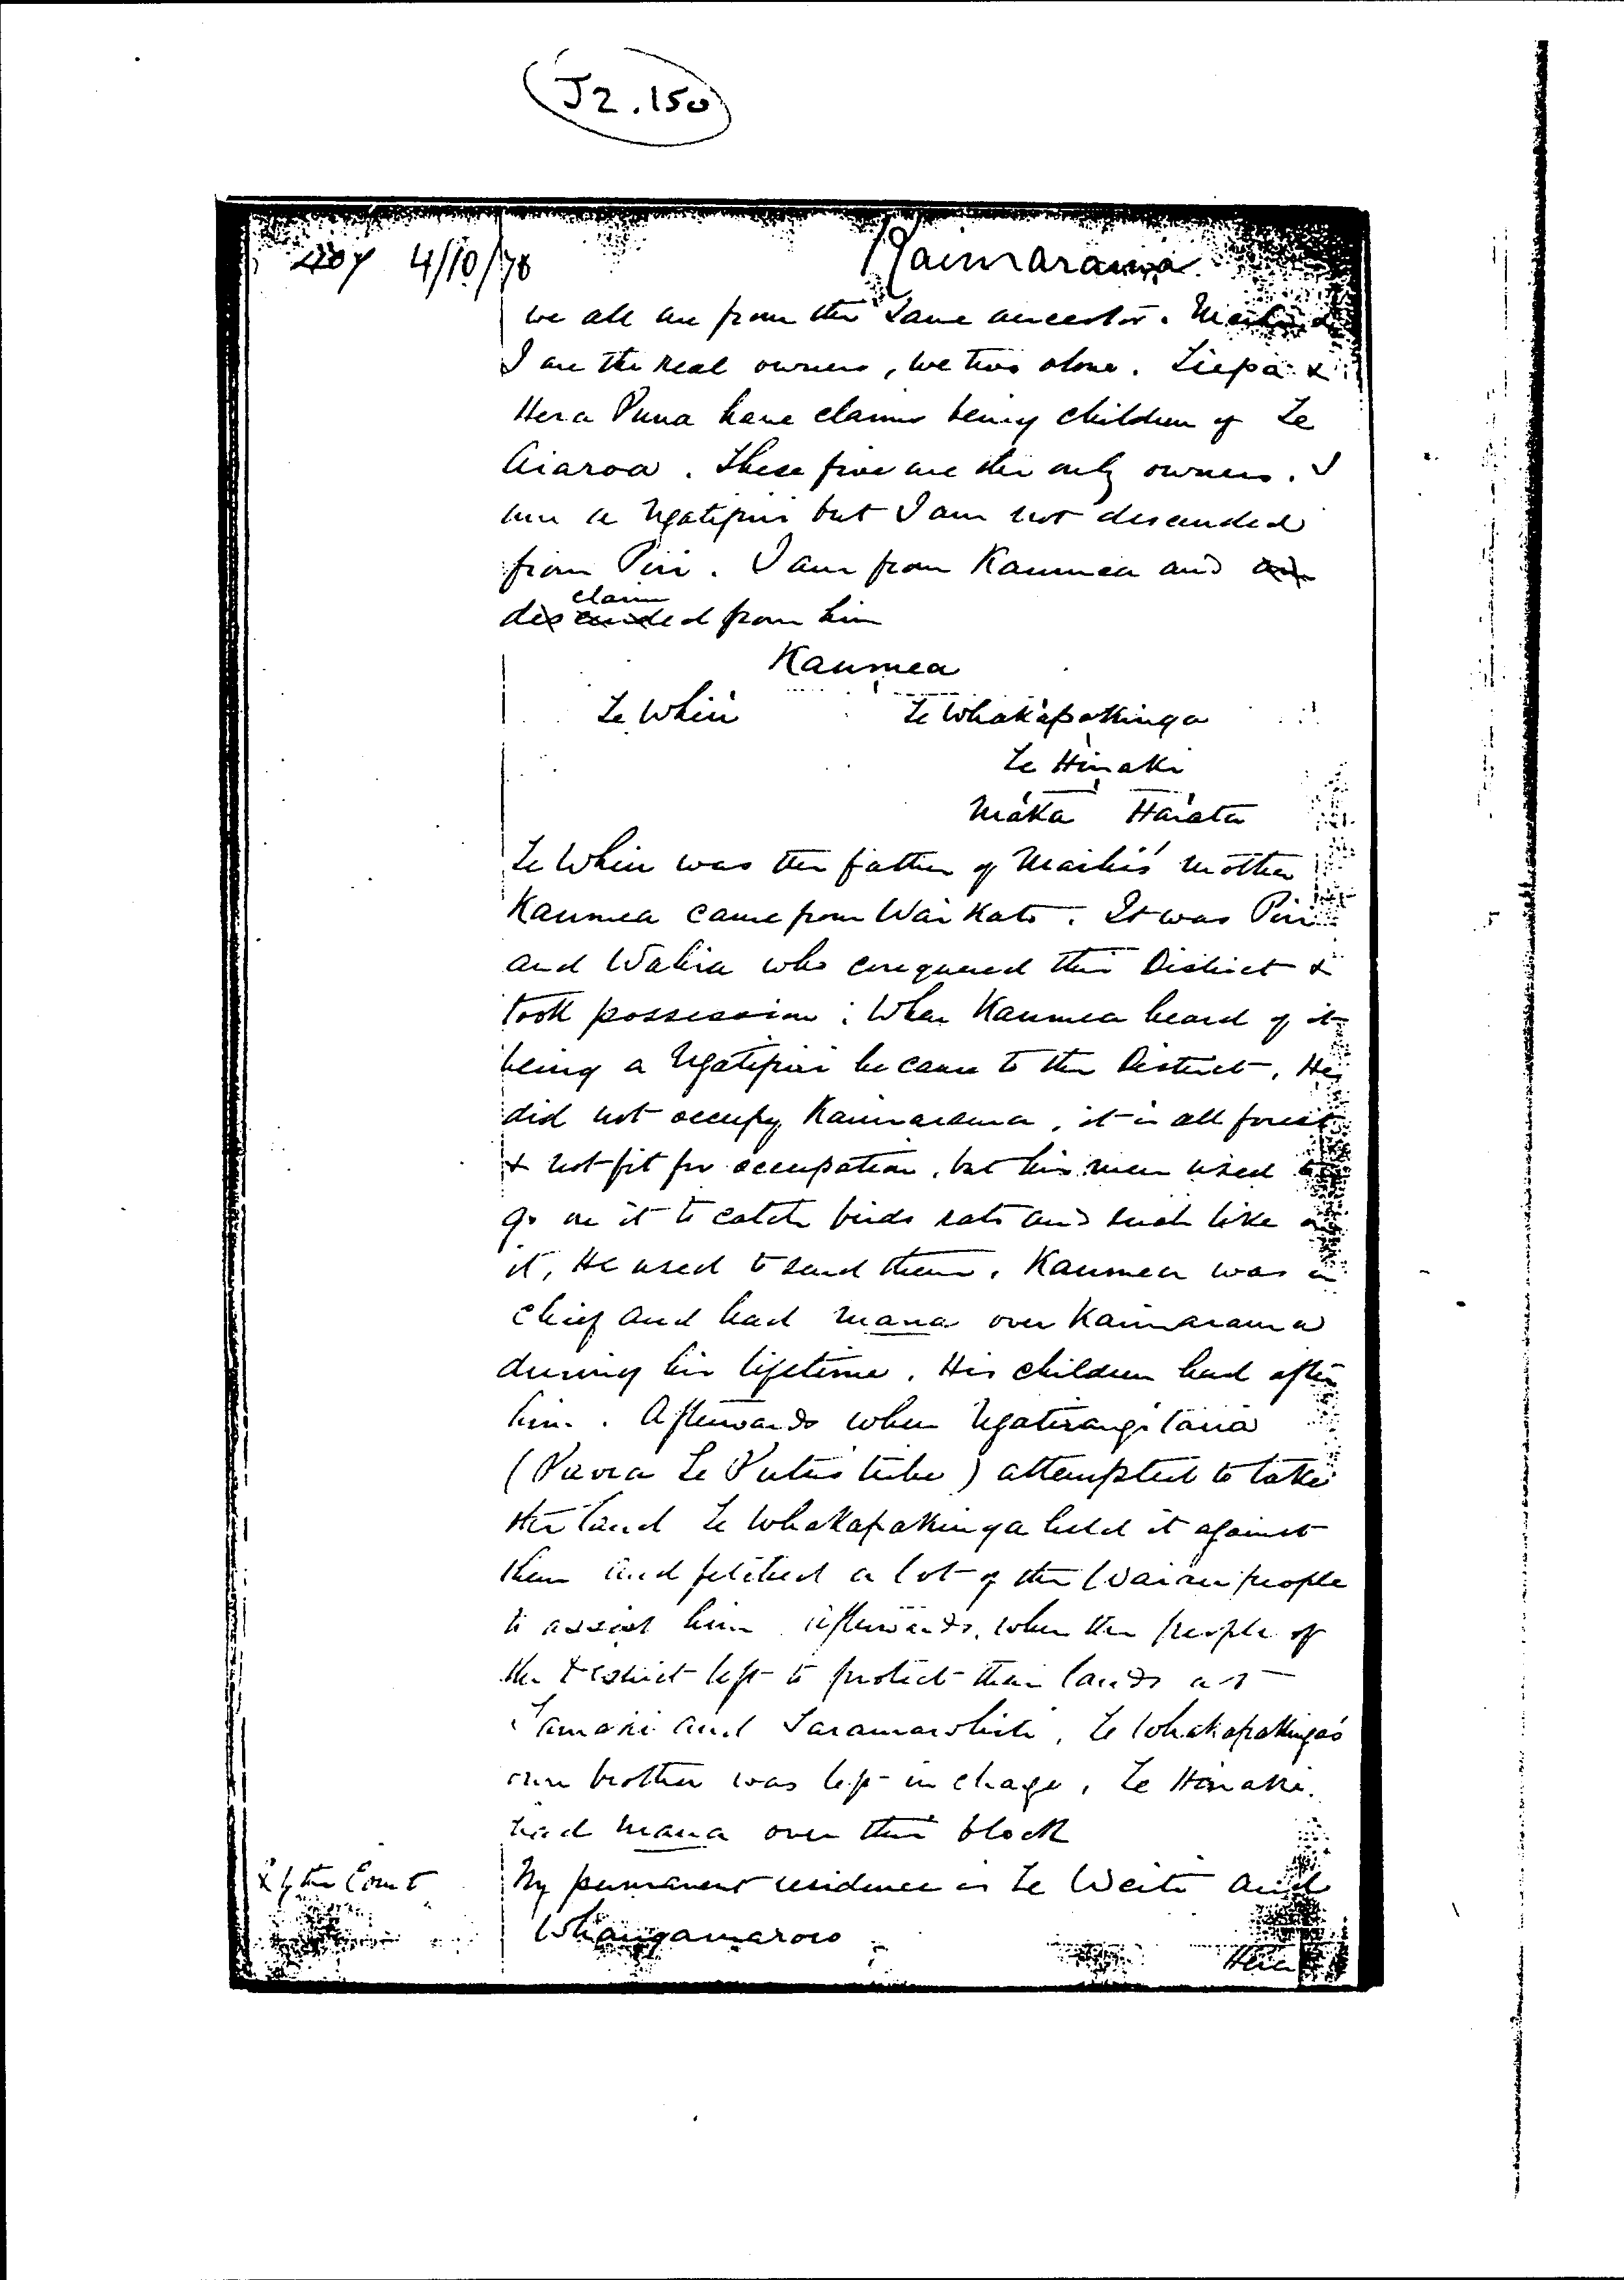 J2.150
4/10/78 Kaimarama
we all are from the same ancestor.
I are the real owners, we two alone. Liepa &
Hera Puna have claims being children of Te
Aiaroa. These five are the only owners. I
am a Ngatipiri but I am not descended
from Piri. I am from Kaumea and
claim
descended from him
Kaumea
Te Whiu Te Whakapakinga
Te Hinaki
Maka Harata
Te Whiu was the father of Maihi's mother
Kaumea came from Waikato. It was Piri
and Wahia who conquered this District &
took possession. When Kaumea heard of it
being a Ngatipiri he came to the District. He
did not occupy Kaimarama, it is all forest
& not fit for occupation, but his men used to
go on it to catch birds rats and such like on
it, He used to send them. Kaumea was a
chief and had mana over Kaimarama
during his lifetime. His children had after
him. Afterwards when Ngatirangitaua
(Te tribe) attempted to take
the land Te Whakapakinga held it against
them and fetched a lot of the people
to assist him afterwards, when the people of
the District left to protect their lands at
Tamaki and Taramawhiti, Te Whakapakinga's
own brother was left in charge, Te Hinaki.
had mana over this block
X by the Court My permanent residence is Te Weiti and
Whangamaroro
Hera